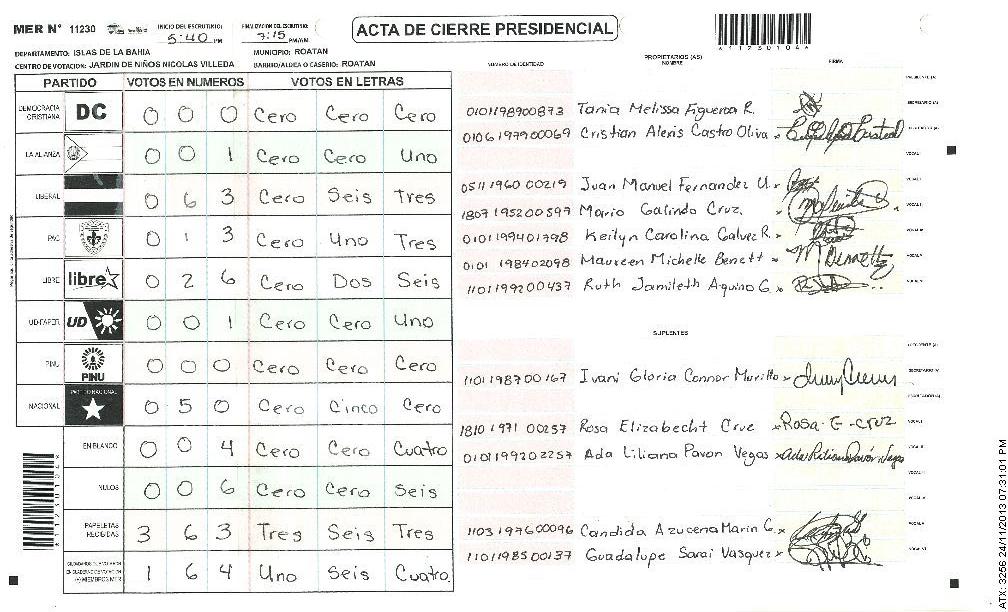 MER N° 11230
INICIO DEL ESCRUTINIO: 5:40 PM
FINALIZACION DEL ESCRUTINIO: 7:15 PM/AM
ACTA DE CIERRE PRESIDENCIAL
DEPARTAMENTO: ISLAS DE LA BAHIA
MUNICIPIO: ROATAN
CENTRO DE VOTACION: JARDIN DE NIÑOS NICOLAS VILLEDA
BARRIO/ALDEA O CASERIO: ROATAN
PARTIDO VOTOS EN NUMEROS VOTOS EN LETRAS
DEMOCRACIA CRISTIANA DC 0 0 0 Cero Cero Cero
LA ALIANZA 0 0 1 Cero Cero Uno
LIBERAL 0 6 3 Cero Seis Tres
PAC 0 1 3 Cero Uno Tres
LIBRE libre 0 2 6 Cero Dos Seis
UD-FAPER UD 0 0 1 Cero Cero Uno
PINU PINU 0 0 0 Cero Cero Cero
NACIONAL PARTIDO NACIONAL 0 5 0 Cero Cinco Cero
EN BLANCO 0 0 4 Cero Cero Cuatro
NULOS 0 0 6 Cero Cero Seis
PAPELETAS RECIBIDAS 3 6 3 Tres Seis Tres
(+) MIEMBROS MER 1 6 4 Uno Seis Cuatro
NUMERO DE IDENTIDAD PROPIETARIOS (AS) NOMBRE FIRMA
PRESIDENTE (A)
0101198900873 Tania Melissa Figueroa R. SECRETARIO (A)
0106197900069 Cristian Alenis Castro Oliva
VOCAL I
0511196000219 Juan Manuel Fernandez U.
1807195200597 Mario Galindo Cruz
0101199401798 Keilyn Carolina Galvez R.
0101198402098 Maureen Michelle Benett M Bennett
1101199200437 Ruth Jamileth Aquino G.
SUPLENTES
1101198700167 Ivani Gloria Connor Murillo
1810197100257 Rosa Elizabecht Cruz Rosa-E-cruz
0101199202257 Ada Liliana Pavon Vegas
1103197600096 Candida Azucena Marin G.
1101198500137 Guadalupe Sarai Vasquez
ATX: 3256 24/11/2013 07:31:01 PM